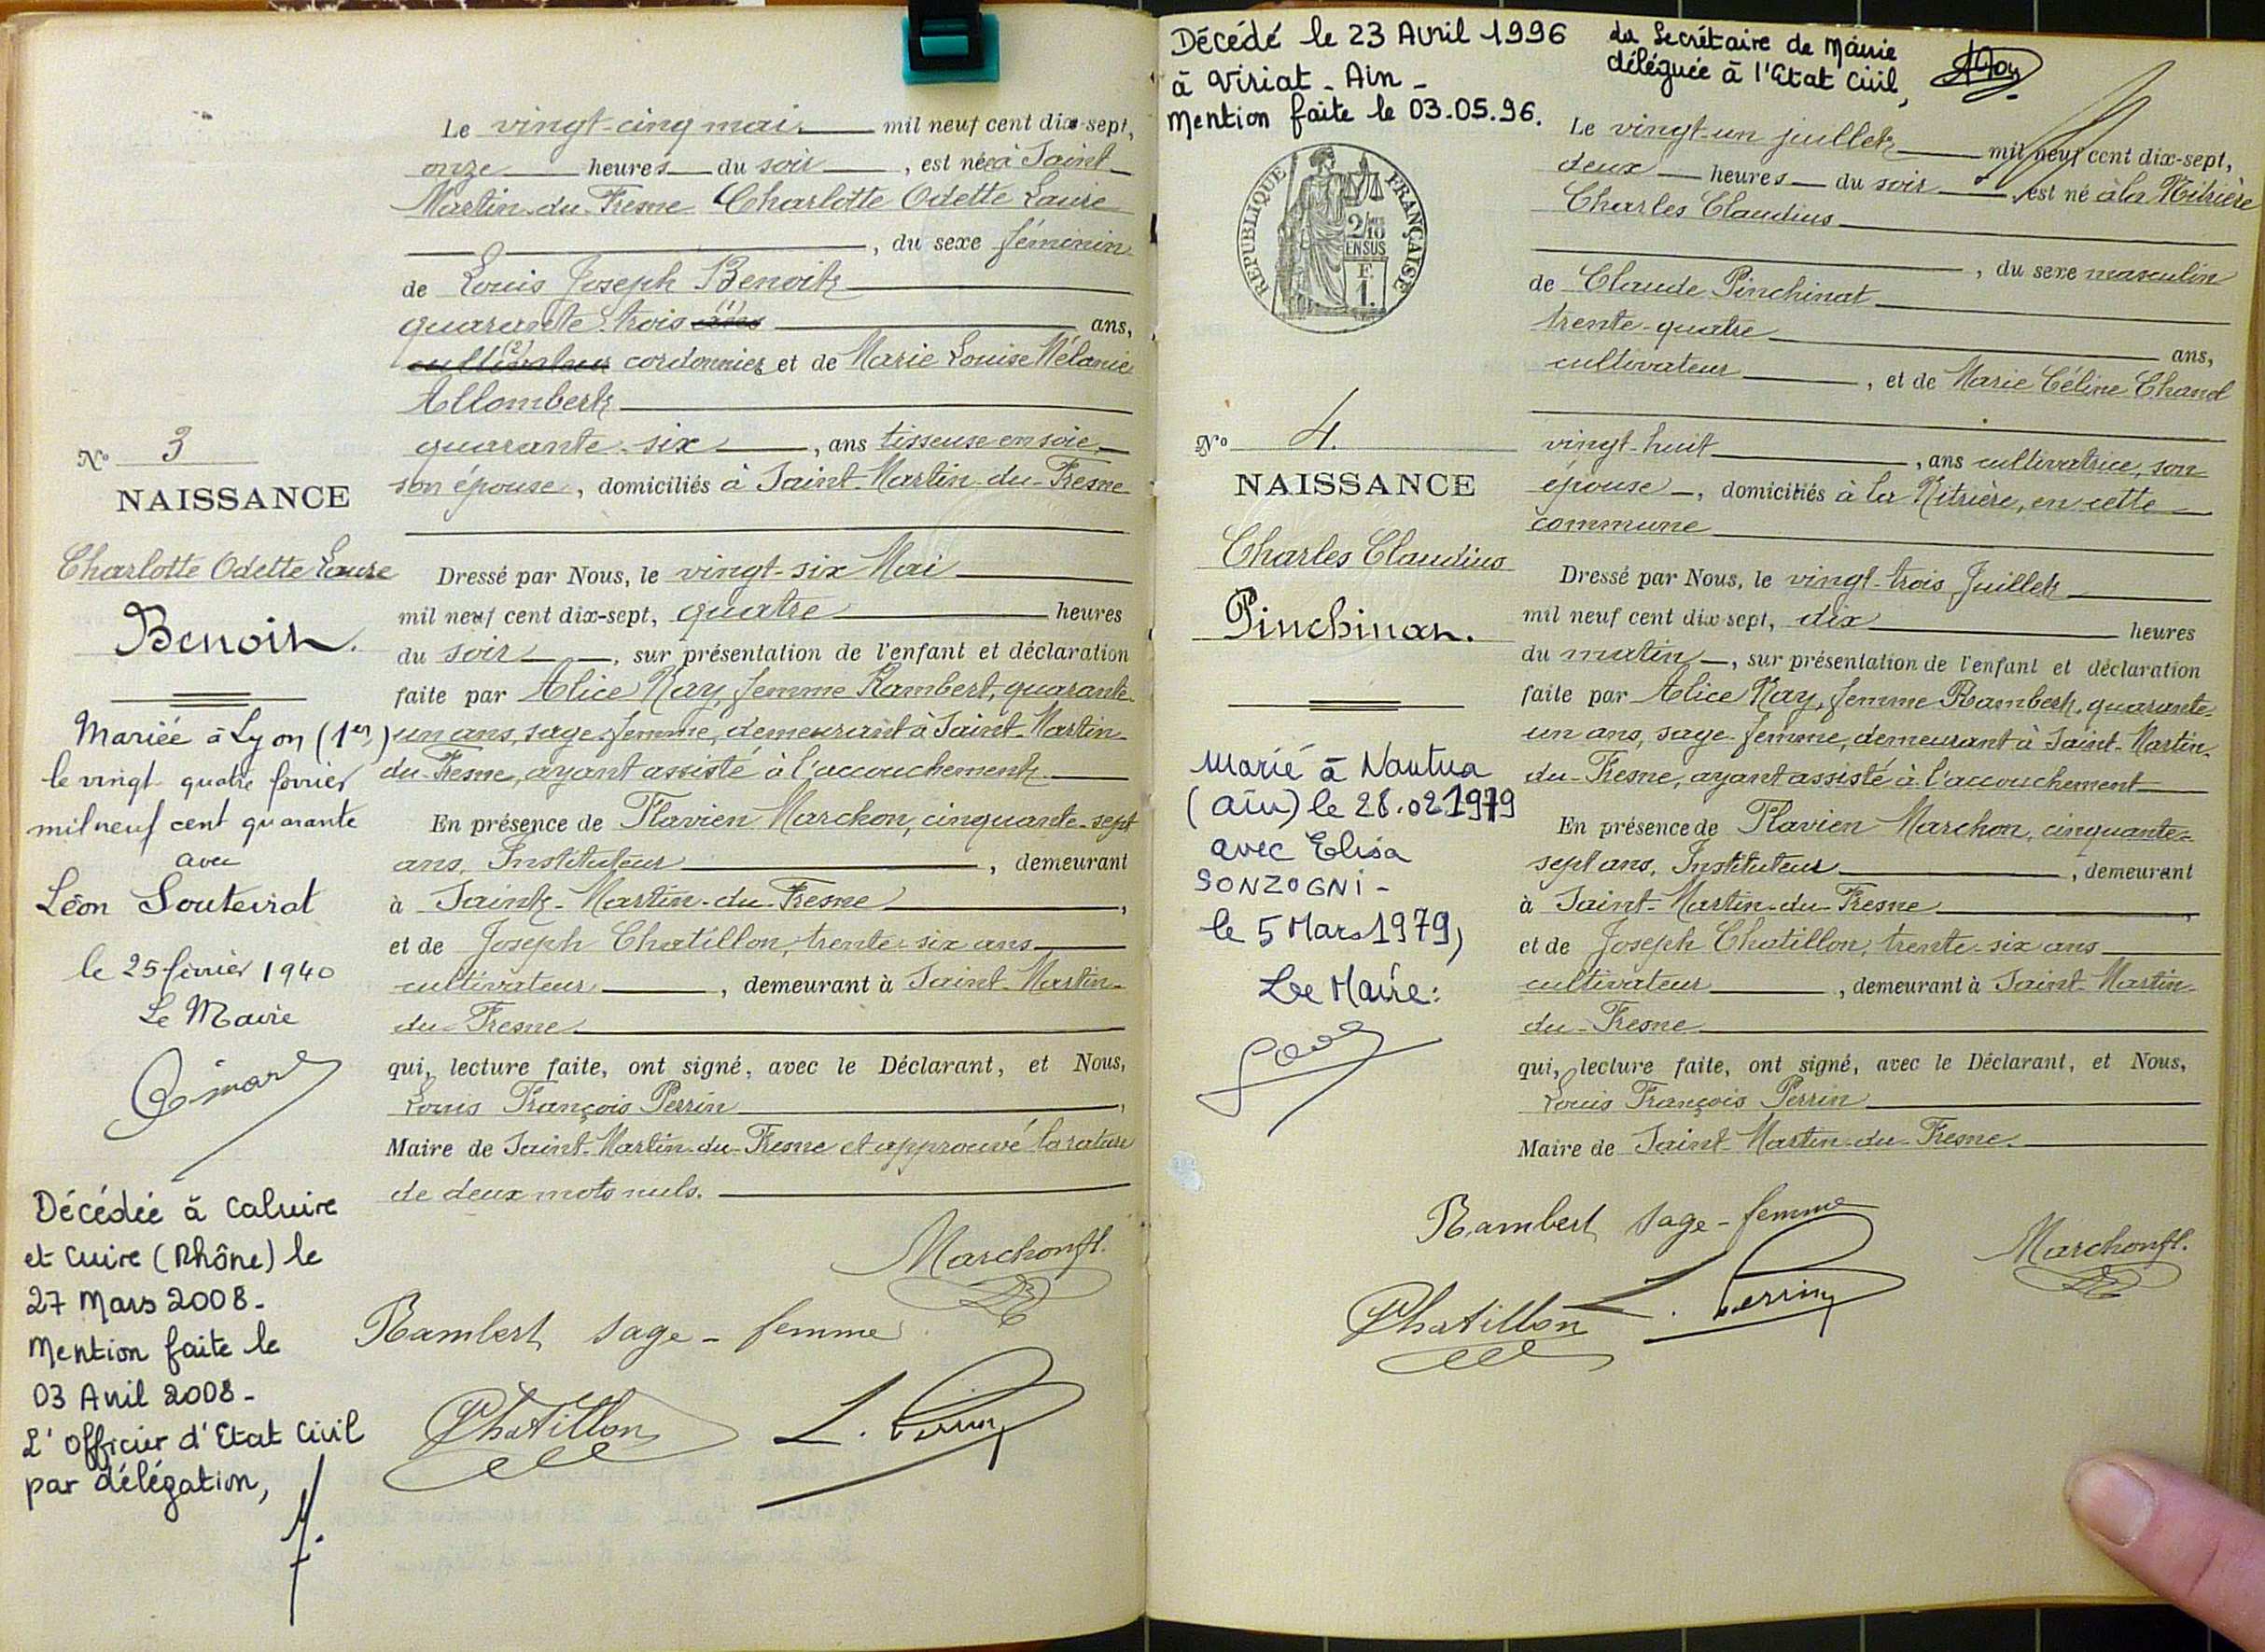 Le vingt-cinq mai mil neuf cent dix-sept,
onze heures du soir, est née à Saint-
Martin-du-Fresne Charlotte Odette Laure
, du sexe féminin
de Louis Joseph Benoit
quarante-trois (1) ans,
(2) cultivateur cordonnier et de Marie Louise Mélanie
Allombert
quarante-six, ans tisseuse en soie,
son épouse, domiciliés à Saint-Martin-du-Fresne
Dressé par Nous, le vingt-six Mai
mil neuf cent dix-sept, quatre heures
du soir, sur présentation de l'enfant et déclaration
faite par Alice Ray, femme Rambert, quarante-
un ans, sage-femme, demeurant à Saint-Martin-
du-Fresne, ayant assisté à l'accouchement
En présence de Flavien Marchon, cinquante-sept
ans, Instituteur, demeurant
à Saint-Martin-du-Fresne,
et de Joseph Chatillon, trente-six ans
cultivateur, demeurant à Saint-Martin-
du-Fresne
qui, lecture faite, ont signé, avec le Déclarant, et Nous,
Louis François Perrin,
Maire de Saint-Martin-du-Fresne et approuvé la rature
de deux mots nuls.
Marchon fl.
Rambert sage-femme
Chatillon L. Perrin
N° 3
NAISSANCE
Charlotte Odette Laure
Benoit.
Mariée à Lyon (1er)
le vingt quatre février
mil neuf cent quarante
avec
Léon Souteirat
le 25 février 1940
Le Maire
Décédée à Caluire
et Cuire (Rhône) le
27 Mars 2008-
Mention faite le
03 Avril 2008-
L'Officier d'Etat Civil
par délégation,
Décédé le 23 Avril 1996
à Viriat - Ain -
Mention faite le 03.05.96.
La Secrétaire de Mairie
déléguée à l'Etat Civil,
REPUBLIQUE FRANÇAISE
2/10
EN SUS
F.
1.
N° 4.
NAISSANCE
Charles Claudius
Pinchinat.
Marié à Nantua
(Ain) le 28.02.1979
avec Elisa
SONZOGNI -
le 5 Mars 1979,
Le Maire:
Le vingt-un juillet mil neuf cent dix-sept,
deux heures du soir, est né à la
Charles Claudius
, du sexe masculin
de Claude Pinchinat
trente-quatre ans,
cultivateur, et de Marie Céline Chanel
vingt-huit, ans cultivatrice, son
épouse, domiciliés à la, en cette
commune
Dressé par Nous, le vingt-trois Juillet
mil neuf cent dix-sept, dix heures
du matin, sur présentation de l'enfant et déclaration
faite par Alice Ray, femme Rambert, quarante-
un ans, sage-femme, demeurant à Saint-Martin-
du-Fresne, ayant assisté à l'accouchement
En présence de Flavien Marchon, cinquante-
sept ans, Instituteur, demeurant
à Saint-Martin-du-Fresne,
et de Joseph Chatillon, trente-six ans
cultivateur, demeurant à Saint-Martin-
du-Fresne
qui, lecture faite, ont signé, avec le Déclarant, et Nous,
Louis François Perrin
Maire de Saint-Martin-du-Fresne.
Rambert sage-femme
Marchon fl.
Chatillon L. Perrin